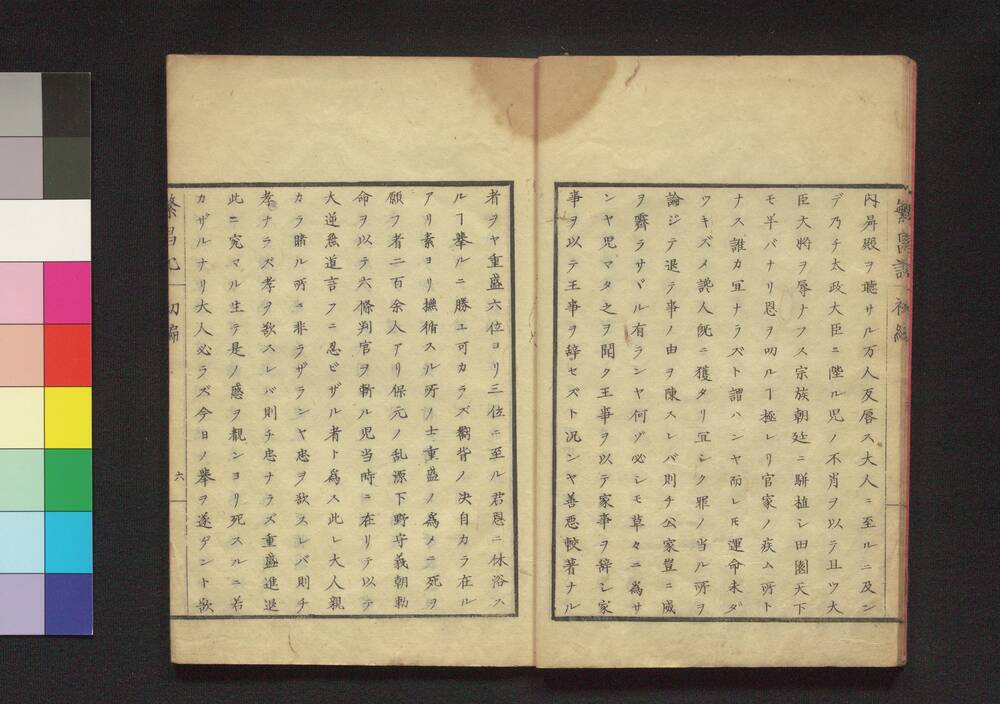 内昇殿ヲ聴サル万人反唇ス大人ニ至ルニ及ン
デ乃チ太政大臣ニ陞ル児ノ不肖ヲ以テ且ツ大
臣大将ヲ辱ナフス宗族朝廷ニ駢植シ田園天下
モ半バナリ恩ヲ叨ルヿ極レリ官家ノ疾ム所ト
ナス誰カ冝ナラズト謂ハンヤ而レ𪜈運命未ダ
ツキズメ讒人既ニ獲タリ冝シク罪ノ当ル所ヲ
論ジテ退テ事ノ由ヲ陳スレバ則チ公家豈ニ威
ヲ霽ラサヾル有ランヤ何ゾ必シモ草々ニ為サ
ンヤ児マタ之ヲ聞ク王事ヲ以テ家事ヲ辞シ家
事ヲ以テ王事ヲ辞セズト况ンヤ善悪較著ナル
者ヲヤ重盛六位ヨリ三位ニ至ル君恩ニ休浴ス
ルヿ挙ルニ勝ユ可カラズ嚮背ノ决自カラ在ル
アリ素ヨリ撫循スル所ノ士重盛ノ為メニ死ヲ
願フ者二百余人アリ保元ノ乱源下野守義朝勅
命ヲ以テ六條判官ヲ斬ル児当時ニ在リテ以テ
大逆無道言フニ忍ビザル者ト為ス此レ大人親
カラ睹ル所ニ非ラザランヤ忠ヲ欲スレバ則チ
孝ナラズ孝ヲ欲スレバ則チ忠ナラズ重盛進退
此ニ究マル生テ是ノ惑ヲ覩ンヨリ死スルニ若
カザルナリ大人必ラズ今日ノ挙ヲ遂ゲント欲
繁昌記 初編
六